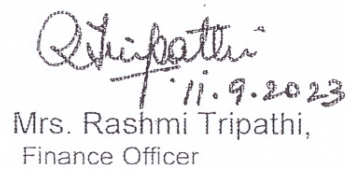 RTripathi
11.9.2023
Mrs. Rashmi Tripathi,
Finance Officer